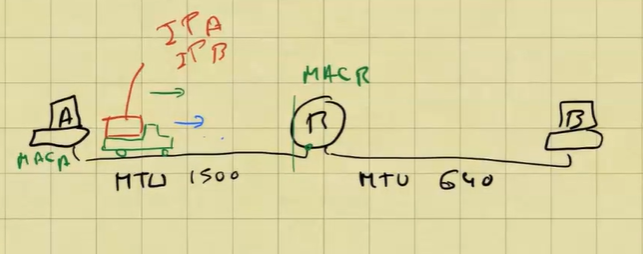 IPA
IPB
MACR
A
R
B
MACA
MTU 1500
MTU 640